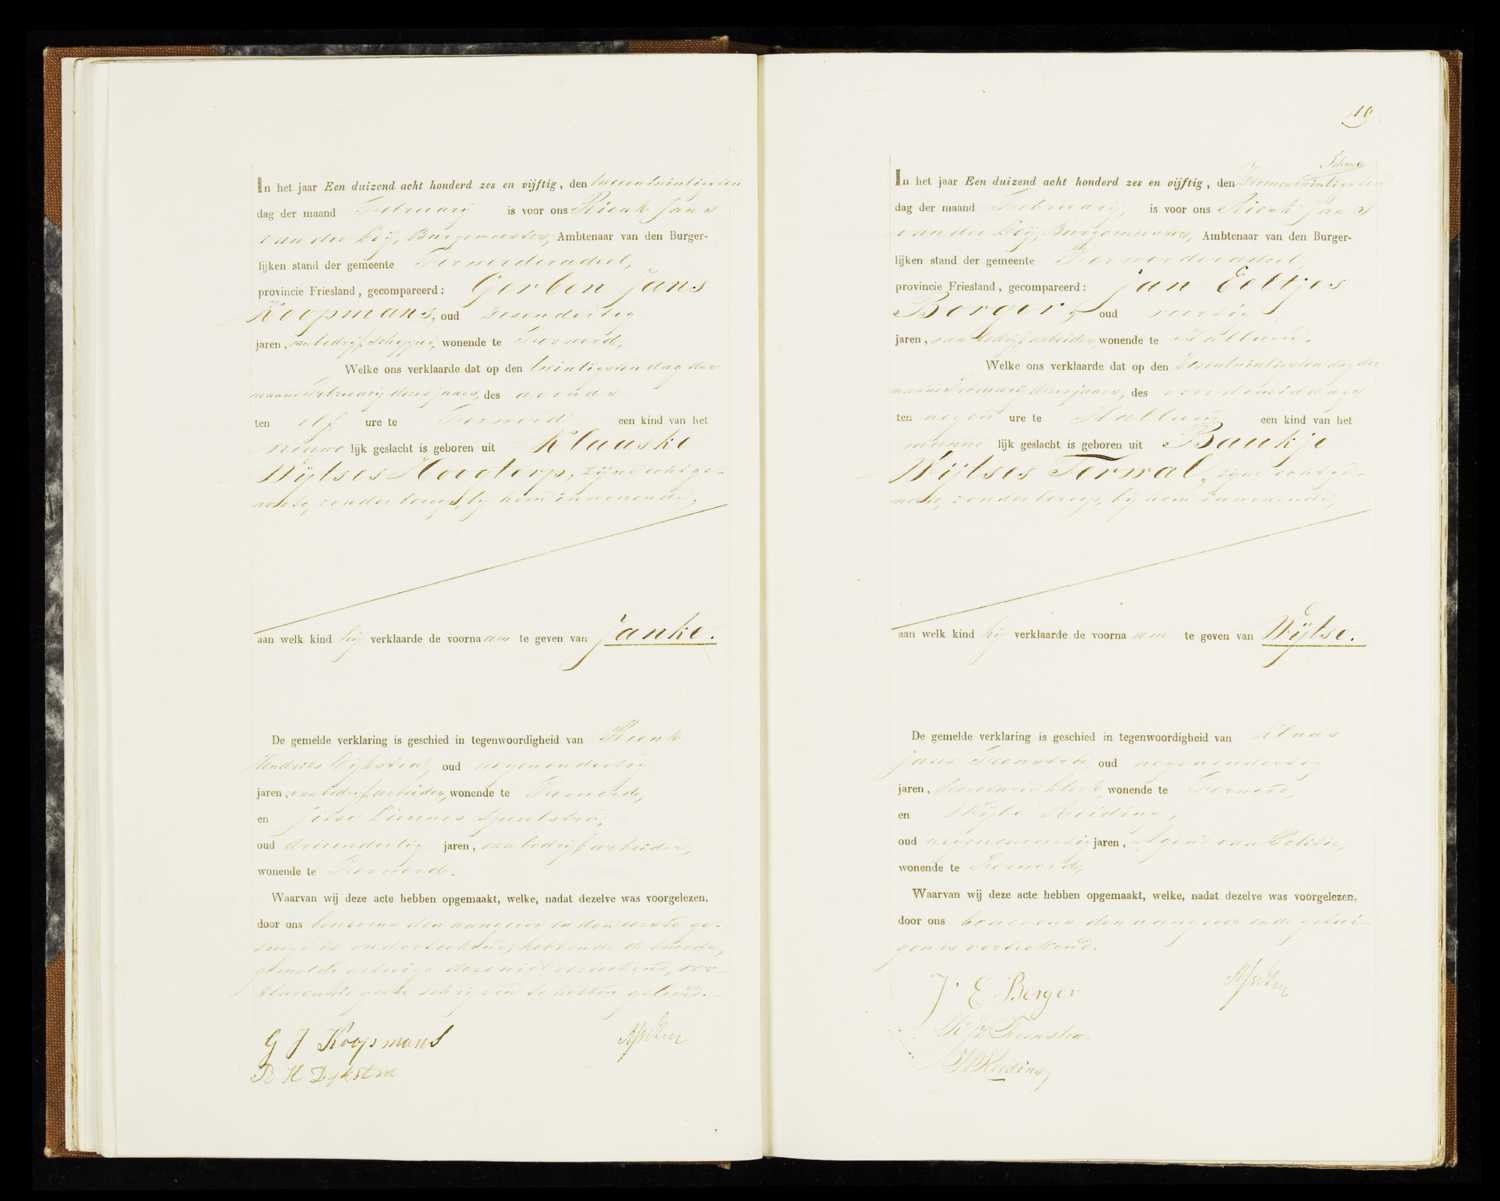 In het jaar Een duizend acht honderd zes en vijftig, den tweeentwintigsten
dag der maand Februarij is voor ons Rienk Jans
van der Leij, Burgemeester, Ambtenaar van den Burger-
lijken stand der gemeente Ferwerderadeel,
provincie Friesland, gecompareerd: Gerben Jans
Koopmans, oud zesendertig
jaren, van bedrijf schipper, wonende te Ferwerd,
Welke ons verklaarde dat op den twintigsten dag der
maand Februarij dezes jaars, des avonds
ten elf ure te Ferwerd een kind van het
vrouwelijk geslacht is geboren uit Klaaske
Wijtses Hoogterp, zijne echtge-
noote, zonder beroep, bij hem inwonende,
aan welk kind hij verklaarde de voornaam te geven van Janke.
De gemelde verklaring is geschied in tegenwoordigheid van Rienk
Hendriks Dijkstra, oud negenendertig
jaren, van bedrijf arbeider, wonende te Ferwerd,
en Jelse
oud drieendertig jaren, van bedrijf arbeider,
wonende te Ferwerd.
Waarvan wij deze acte hebben opgemaakt, welke, nadat dezelve was voorgelezen,
door ons benevens den aangever en den eerste ge-
tuige is onderteekend, hebbende de tweede
gemelde getuige deze niet geteekend, ver-
klarende geen schrijven te hebben geleerd.
G J Koopmans
R H Dijkstra
19
In het jaar Een duizend acht honderd zes en vijftig, den
dag der maand Februarij, is voor ons Rienk Jans
van der Leij, Burgemeester, Ambtenaar van den Burger-
lijken stand der gemeente Ferwerderadeel,
provincie Friesland, gecompareerd: Jan Eeltjes
Berger, oud veertig
jaren, van bedrijf arbeider, wonende te Hallum.
Welke ons verklaarde dat op den dag der
maand Februarij dezes jaars, des voormiddags
ten negen ure te Hallum een kind van het
mannelijk geslacht is geboren uit Baukje
Wijtses Terwal, zijne echtge-
noote, zonder beroep, bij hem inwonende,
aan welk kind hij verklaarde de voornaam te geven van Wijtse.
De gemelde verklaring is geschied in tegenwoordigheid van Klaas
Jans Feenstra oud negenendertig
jaren, wonende te Ferwerd,
en Reiding,
oud jaren, Agent van Politie,
wonende te Ferwerd,
Waarvan wij deze acte hebben opgemaakt, welke, nadat dezelve was voorgelezen,
door ons benevens den aangever en de getui-
gen is onderteekend.
J. E. Berger
K J Feenstra
Reiding